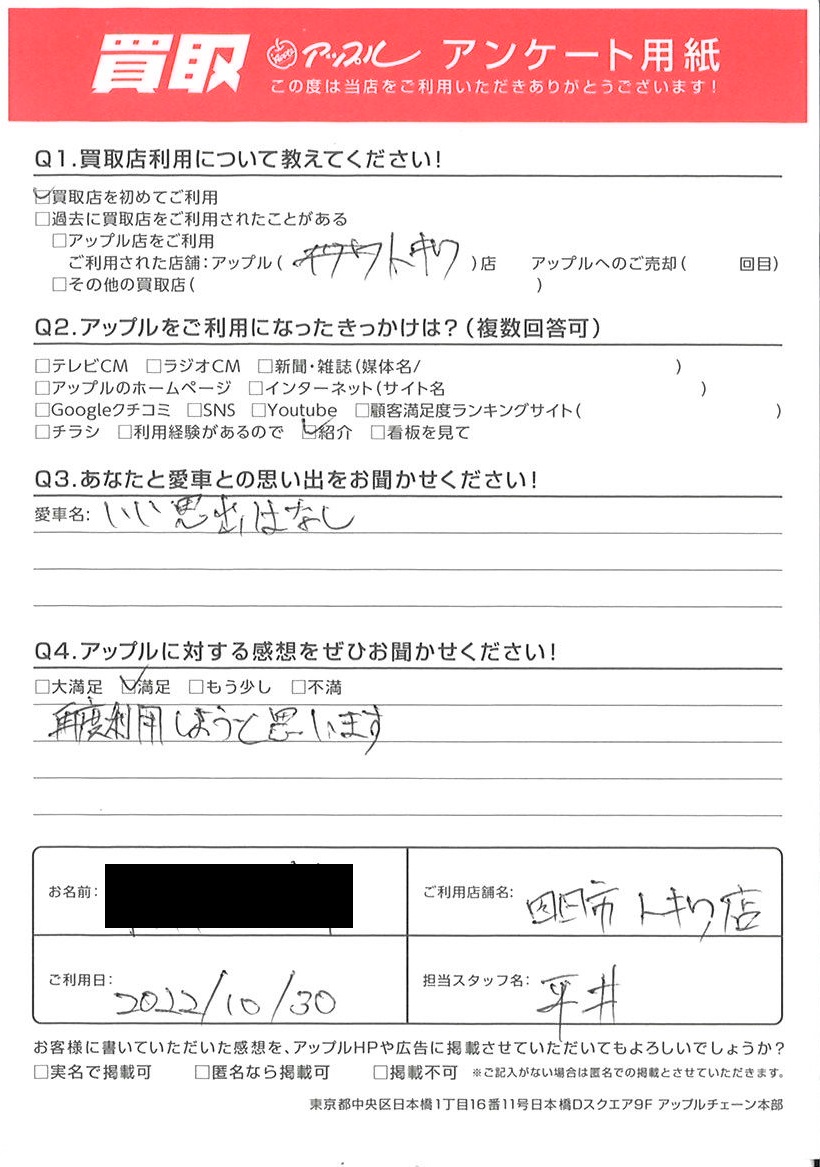 買取 アップル アンケート用紙
この度は当店をご利用いただきありがとうございます！
Q1.買取店利用について教えてください！
☑買取店を初めてご利用
□過去に買取店をご利用されたことがある
□アップル店をご利用
ご利用された店舗：アップル（ トキワ ）店 アップルへのご売却（ 回目）
□その他の買取店（ ）
Q2.アップルをご利用になったきっかけは？（複数回答可）
□テレビCM □ラジオCM □新聞・雑誌（媒体名/ ）
□アップルのホームページ □インターネット（サイト名 ）
□Googleクチコミ □SNS □Youtube □顧客満足度ランキングサイト（ ）
□チラシ □利用経験があるので ☑紹介 □看板を見て
Q3.あなたと愛車との思い出をお聞かせください！
愛車名： いい思出はなし
Q4.アップルに対する感想をぜひお聞かせください！
□大満足 ☑満足 □もう少し □不満
再度利用しようと思います
お名前：
ご利用店舗名： 四日市トキワ店
ご利用日： 2022/10/30
担当スタッフ名： 平井
お客様に書いていただいた感想を、アップルHPや広告に掲載させていただいてもよろしいでしょうか？
□実名で掲載可 □匿名なら掲載可 □掲載不可 ※ご記入がない場合は匿名での掲載とさせていただきます。
東京都中央区日本橋1丁目16番11号日本橋Dスクエア9F アップルチェーン本部